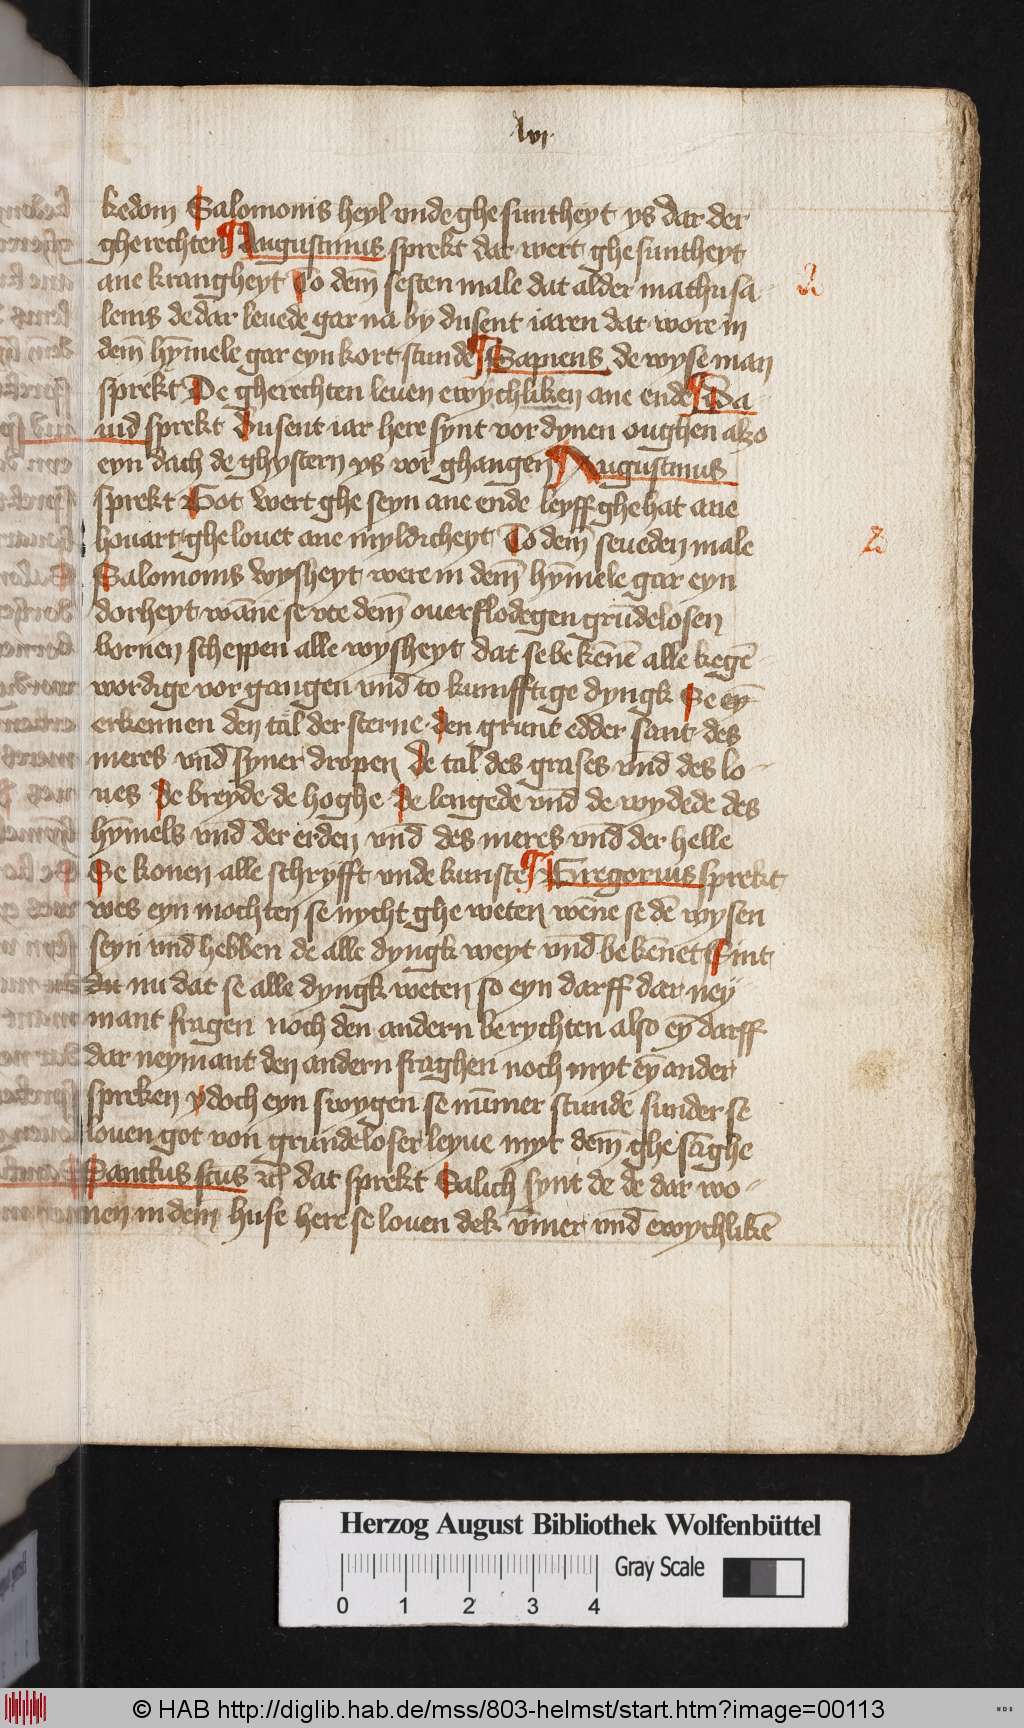 lvi
kedom Salomonis heyl vnde ghe suntheyt ys dar der
gherechten ¶ Augustinus sprekt dar wert ghe suntheyt
ane krangheyt To dem̄ sesten male dat alder mathusa
lems de dar leuede gar na by dusent iaren dat wore in
dem̄ hym̄ele gar eyn kort stunde ¶ Sapiens de wyse man
sprekt De gherechten leuen ewychliken ane ende ¶ Da
uid sprekt Dusent iar here synt vor dynen oughen also
eyn dach de ghystern ys vor ghangen ¶ Augustinus
sprekt Got wert ghe seyn ane ende leyff ghe hat ane
houart ghe louet ane myldicheyt To dem̄ seueden male
Salomonis wysheyt were in dem̄ hym̄ele gar eyn
dorheyt wāne se vte dem̄ ouerflodegen grūdelosen
bornen scheppen alle wysheyt dat se be kēnē alle kegē
wordige vor gangen vnd̄ to kumfftige dyngk Se eȳ
erkennen den tal der sterne den grunt edder sant des
meres vnd̄ syner dropen De tal des grases vnd̄ des lo
ues De breyde de hoghe De lengede vnd̄ de wydede des
hym̄els vnd̄ der erden vnd̄ des meres vnd̄ der helle
Se konen alle schryfft vnde kunste ¶ Gregorius sprekt
wes eyn mochten se nycht ghe weten wēne se dē wysen
seyn vnd̄ hebben de alle dyngk weyt vnd̄ be kēnet Sint
du nu dat se alle dyngk weten so eyn darff dar ney
mant fragen noch den andern be rychten also eȳ darff
dar neymant den andern fraghen noch myt eȳ ander
spreken ydoch eyn swygen se nūmer stunde sunder se
louen got von grundeloser leyue myt dem̄ ghe sāghe
Sanctus scūs rc̄ dat sprekt Salich synt de de dar wo
nen in dem̄ huse here se louen dek ūmer vnd̄ ewychlikē
2
Z
Herzog August Bibliothek Wolfenbüttel
Gray Scale
0 1 2 3 4
© HAB http://diglib.hab.de/mss/803-helmst/start.htm?image=00113